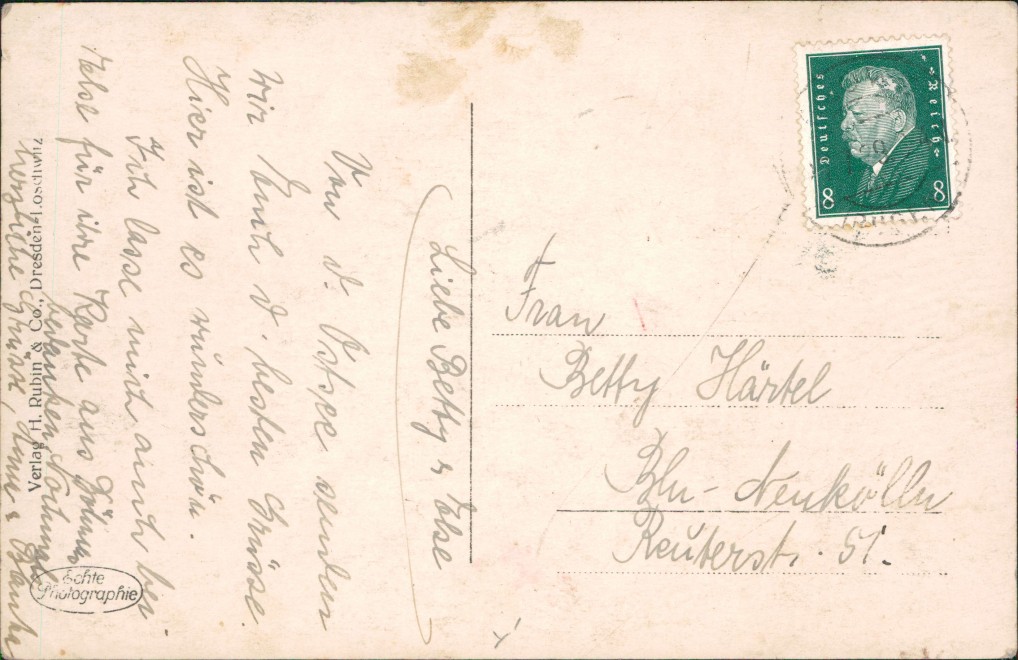 Liebe Betty & Ilse
Von d. Ostsee senden
wir Euch d. besten Grüsse.
Hier ist es wunderschön.
Ich lasse mich auch bei
Ilse für ihre Karte aus
bedanken
herzliche Grüsse,
Verlag H. Rubin & Co., Dresden-Loschwitz
Echte
Photographie
Deutsches Reich
8 8
Frau
Betty Härtel
Bln-Neukölln
Reuterstr. 51.